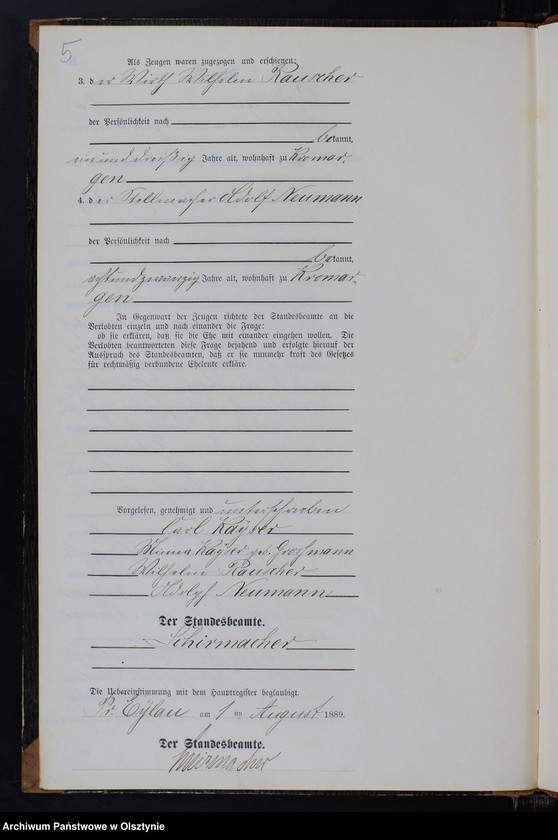 5
Als Zeugen waren zugezogen und erschienen:
3. der Wirth Wilhelm Rauscher
der Persönlichkeit nach
bekannt,
einunddreißig Jahre alt, wohnhaft zu Kromar-
gen
4. der Stellmacher Adolf Neumann
der Persönlichkeit nach
bekannt,
achtundzwanzig Jahre alt, wohnhaft zu Kromar-
gen
In Gegenwart der Zeugen richtete der Standesbeamte an die
Verlobten einzeln und nach einander die Frage:
ob sie erklären, daß sie die Ehe mit einander eingehen wollen. Die
Verlobten beantworteten diese Frage bejahend und erfolgte hierauf der
Ausspruch des Standesbeamten, daß er sie nunmehr kraft des Gesetzes
für rechtmäßig verbundene Eheleute erkläre.
Vorgelesen, genehmigt und unterschrieben
Carl Kayser
Minna Kayser geb. Großmann
Wilhelm Rauscher
Adolph Neumann
Der Standesbeamte.
Schirmacher
Die Uebereinstimmung mit dem Hauptregister beglaubigt.
Pr. Eylau am 1 ten August 1889.
Der Standesbeamte.
Schirmacher
Archiwum Państwowe w Olsztynie